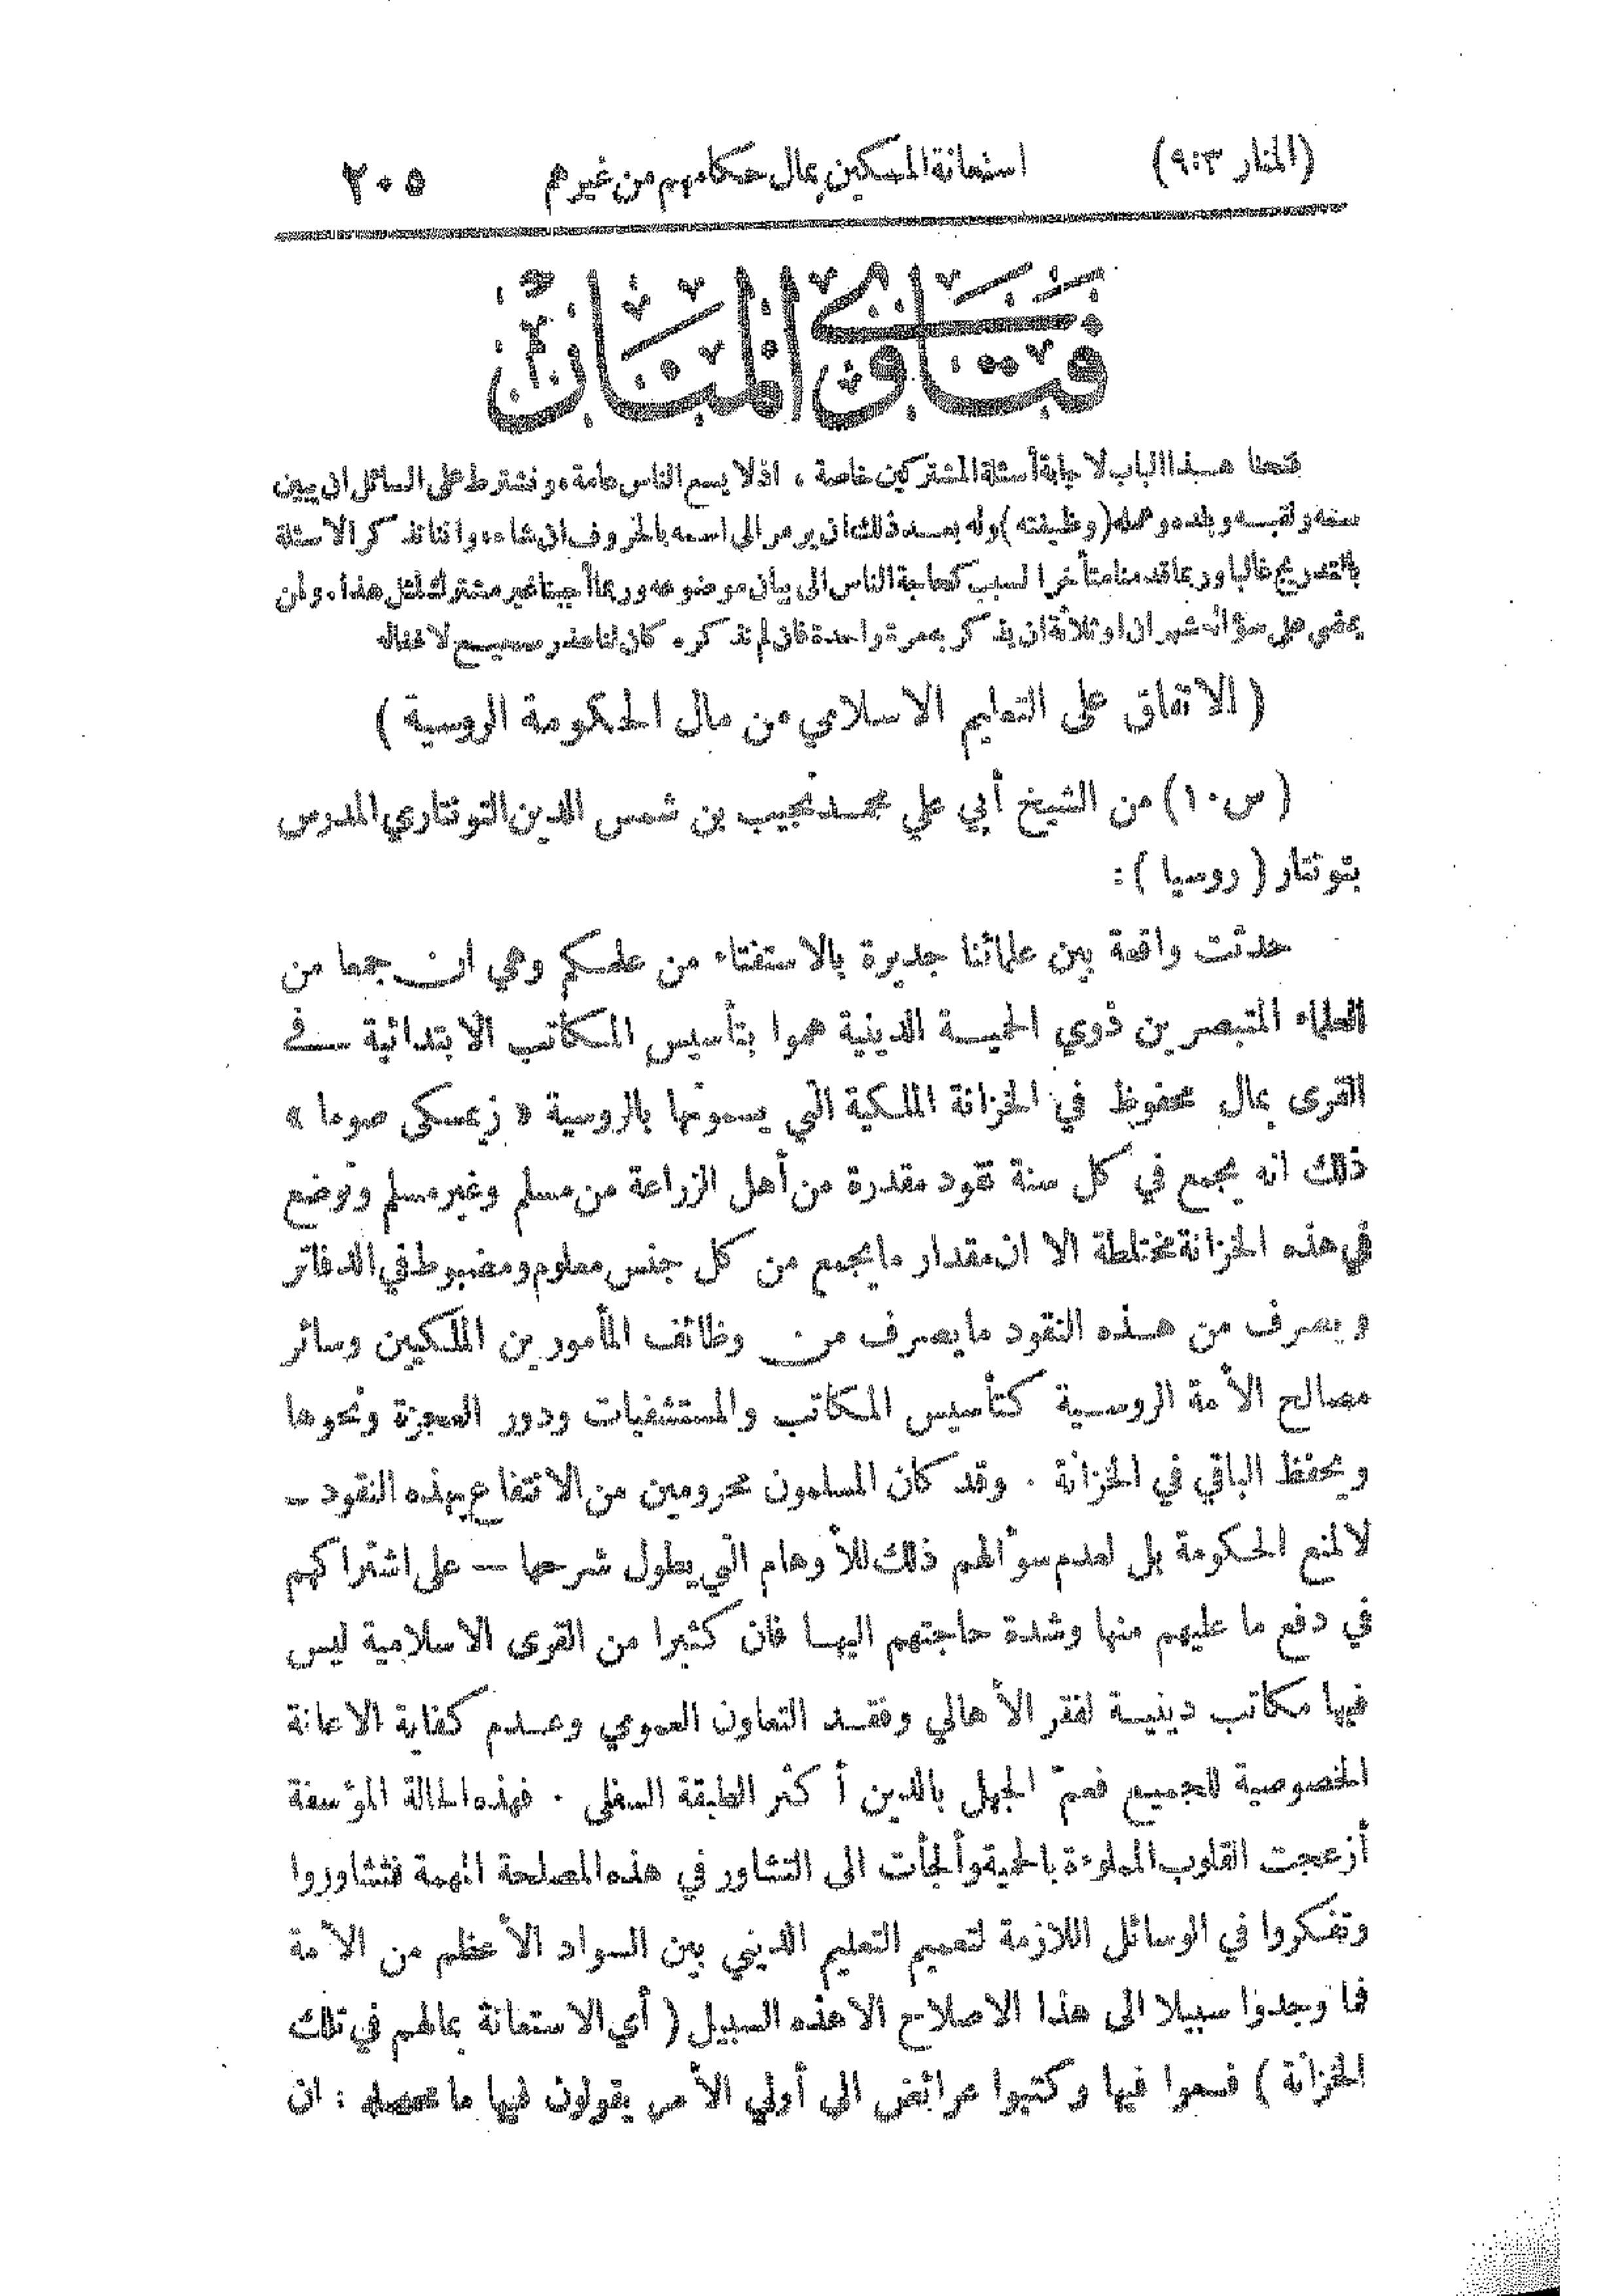 (المنار ٩:٣) استعانة المسلمين بمال حكامهم من غيرهم ٢٠٥
فتاوى المنار
فتحنا هذا الباب لاجابة أسئلة المشتركين خاصة ، اذلا يسع الناس عامة، ونشترط على السائل ان يبين
اسمه ولقبه وبلده وعمله (وظيفته) وله بعد ذلك ان يرمز الى اسمه بالحروف ان شاء، واننا نذكر الاسئلة
بالتدريج غالبا وربما قدمنا متأخرا لسبب كحاجة الناس الى بيان موضوعه وربما أجبنا غير مشترك لمثل هذا. ولمن
يمضي على سؤاله شهران او ثلاثة ان يذكر به مرة واحدة فان لم نذكره كان لنا عذر صحيح لاغفاله
( الاتفاق على التعليم الاسلامي من مال الحكومة الروسية )
( س ١٠ ) من الشيخ أبي علي محمد نجيب بن شمس الدين التونتاري المدرس
بتونتار ( روسيا ) :
حدثت واقعة بين علمائنا جديرة بالاستفتاء من علمكم وهي ان جمعا من
العلماء المتبصرين ذوي الحمية الدينية هموا بتأسيس المكاتب الابتدائية في
القرى بمال محفوظ في الخزانة الملكية التي يسمونها بالروسية « زعسكى صوما »
ذلك انه يجمع في كل سنة نقود مقدرة من أهل الزراعة من مسلم وغير مسلم وتوضع
في هذه الخزانة مختلطة الا ان مقدار ما يجمع من كل جنس معلوم ومضبوط في الدفاتر
ويصرف من هذه النقود ما يصرف من وظائف المأمورين الملكيين وسائر
مصالح الأمة الروسية كتأسيس المكاتب والمستشفيات ودور العجزة ونحوها
ويحفظ الباقي في الخزانة . وقد كان المسلمون محرومين من الانتفاع بهذه النقود –
لا لمنع الحكومة بل لعدم سوألهم ذلك للأوهام التي يطول شرحها — على اشتراكهم
في دفع ما عليهم منها وشدة حاجتهم اليها فان كثيرا من القرى الاسلامية ليس
فيها مكاتب دينية لفقر الأهالي وفقد التعاون العمومي وعدم كفاية الاعانة
الخصوصية للجميع فعمّ الجهل بالدين أكثر الطبقة السفلى . فهذه الحالة المؤسفة
أزعجت القلوب المملوءة بالحمية وألجأت الى التشاور في هذه المصلحة المهمة فتشاوروا
وتفكروا في الوسائل اللازمة لتعميم التعليم الديني بين السواد الأعظم من الأمة
فما وجدوا سبيلا الى هذا الاصلاح الا هذه السبيل ( أي الاستعانة بمالهم في تلك
الخزانة ) فسعوا فيها وكتبوا عرائض الى أولي الأمر يقولون فيها ما محصله : ان